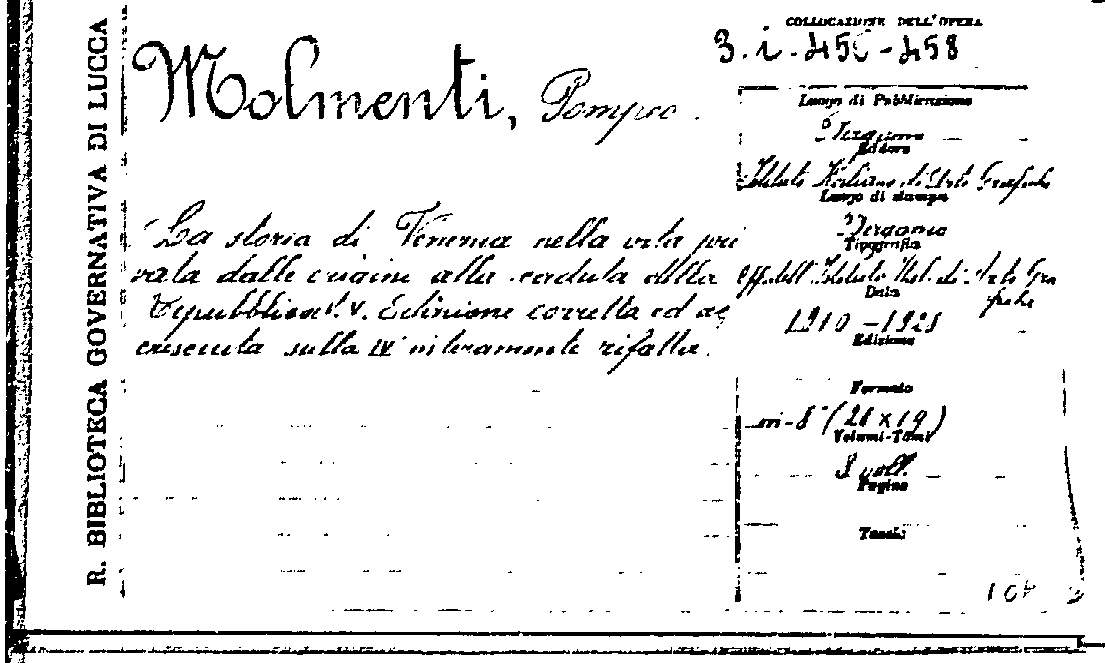 R. BIBLIOTECA GOVERNATIVA DI LUCCA
COLLOCAZIONE DELL'OPERA
3. i. 456-458
Molmenti, Pompeo.
La storia di Venezia nella vita pri
vata dalle origini alla caduta della
Repubblica. V. Edizione corretta ed ac
cresciuta sulla IV interamente rifatta.
Luogo di Pubblicazione
Bergamo
Editore
Istituto Italiano di Arti Grafiche
Luogo di stampa
Bergamo
Tipografia
Off. dell' Istituto Ital. di Arti Gra
fiche
Data
1910-1925
Edizione
Formato
in-8° (28 x 19)
Volumi-Tomi
3 voll.
Pagine